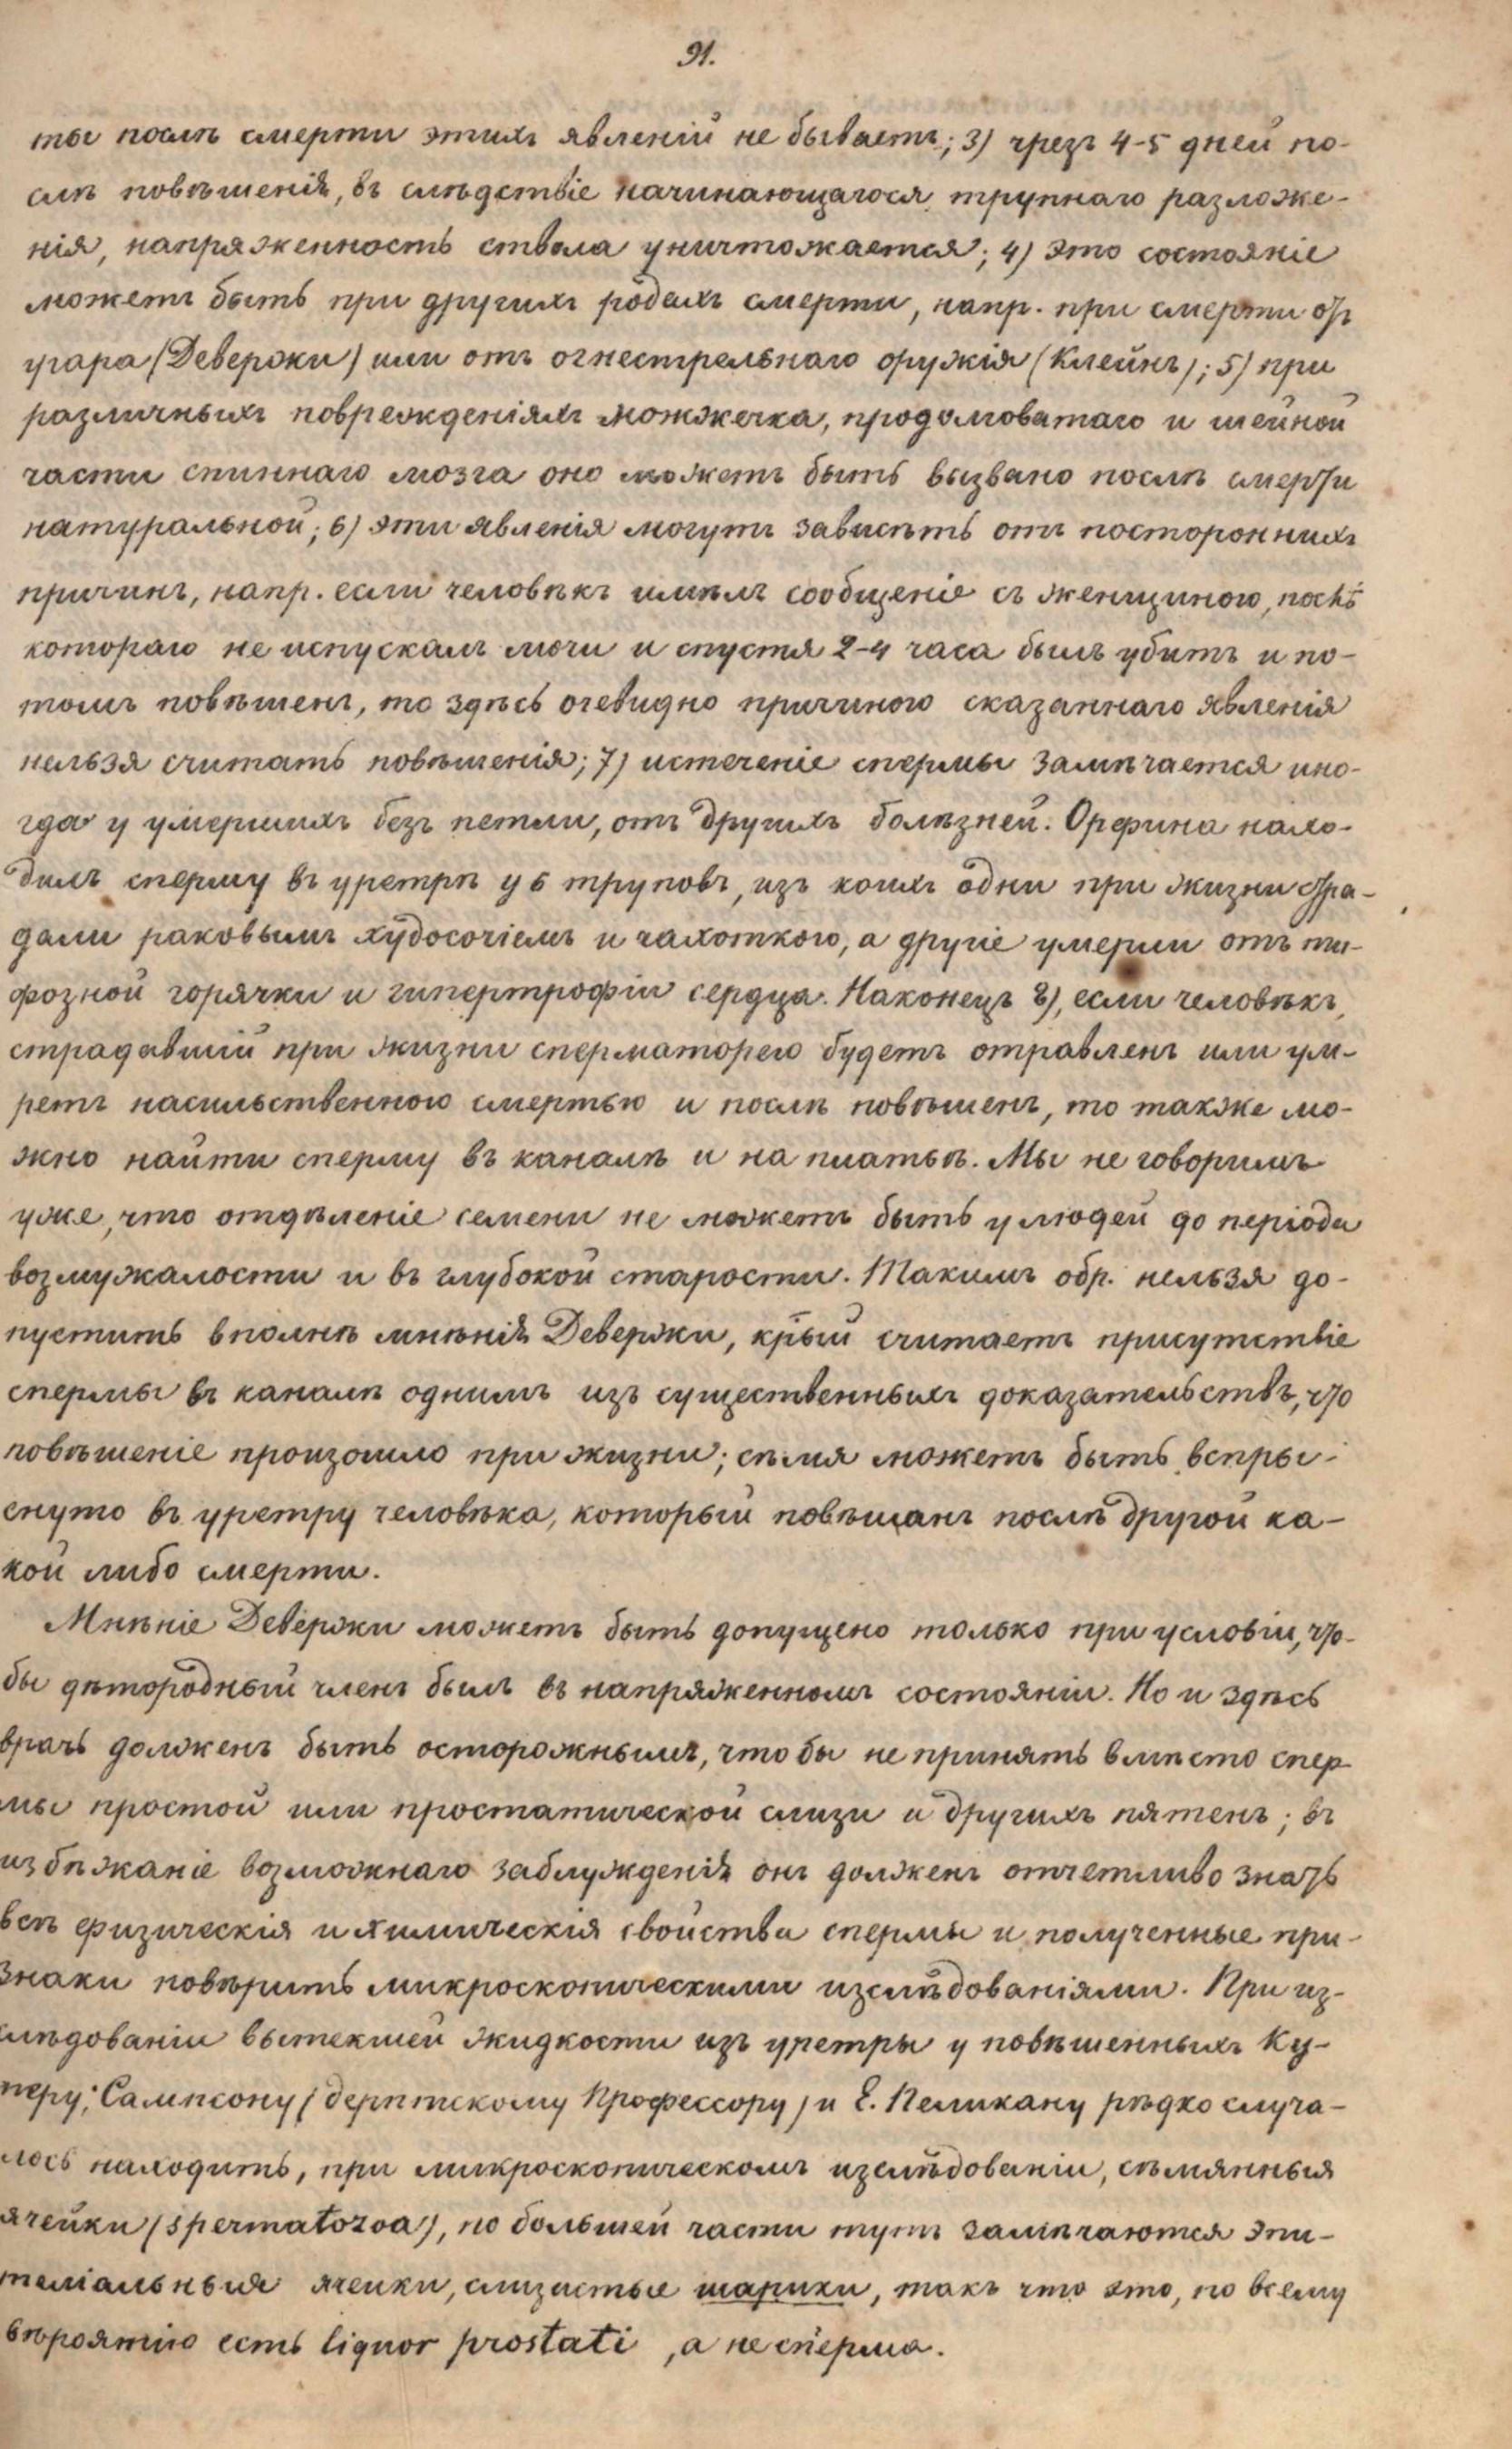 91.
ты послѣ смерти этихъ явленій не бываетъ; 3) чрезъ 4-5 дней по-
слѣ повѣшенія, въ слѣдствіе начинающагося трупнаго разложе-
нія, напряженность ствола уничтожается; 4) это состояніе
можетъ быть при другихъ родахъ смерти, напр. при смерти отъ
угара (Девержи) или отъ огнестрельнаго оружія (Клейнъ); 5) при
различныхъ поврежденіяхъ можжечка, продолговатаго и шейной
части спиннаго мозга оно можетъ быть вызвано послѣ смерти
натуральной; 6) эти явленія могутъ зависѣть отъ постороннихъ
причинъ, напр. если человѣкъ имѣлъ сообщеніе съ женщиною, послѣ
котораго не испускалъ мочи и спустя 2-4 часа былъ убитъ и по-
томъ повѣшенъ, то здѣсь очевидно причиною сказаннаго явленія
нельзя считать повѣшенія; 7) истеченіе спермы замѣчается ино-
гда у умершихъ безъ петли, отъ другихъ болѣзней. Орфина нахо-
дилъ сперму въ уретрѣ у 6 труповъ, изъ коихъ одни при жизни стра-
дали раковымъ худосочіемъ и чахоткою, а другіе умерли отъ ти-
фозной горячки и гипертрофіи сердца. Наконецъ 8), если человѣкъ,
страдавшій при жизни сперматорею будетъ отравленъ или ум-
ретъ насильственною смертью и послѣ повѣшенъ, то также мо-
жно найти сперму въ каналѣ и на платьѣ. Мы не говоримъ
уже, что отдѣленіе семени не можетъ быть у людей до періода
возмужалости и въ глубокой старости. Такимъ обр. нельзя до-
пустить вполнѣ мнѣнія Девержи, крый считаетъ присутствіе
спермы въ каналѣ однимъ изъ существенныхъ доказательствъ, что
повѣшеніе произошло при жизни; сѣмя можетъ быть впры-
снуто въ уретру человѣка, который повѣшанъ послѣ другой ка-
кой либо смерти.
Мнѣніе Девержи можетъ быть допущено только при условіи, что-
бы дѣтородный членъ былъ въ напряженномъ состояніи. Но и здѣсь
врачь долженъ быть осторожнымъ, что бы не принять вмѣсто спер
мы простой или простатической слизи и другихъ пятенъ; въ
избѣжаніе возможнаго заблужденія онъ долженъ отчетливо знать
всѣ физическія и химическія свойства спермы и полученные при-
знаки повѣрить микроскопическими изслѣдованіями. При из-
слѣдованіи вытекшей жидкости изъ уретры у повѣшенныхъ Ку-
перу, Сампсону (дерптскому Профессору) и Е. Пеликану рѣдко случа-
лось находить, при микроскопическомъ изслѣдованіи, сѣмянныя
ячейки (spermatozoa), по большей части тутъ замѣчаются эпи-
теліальныя ячейки, слизистые шарики, такъ что это, по всему
вѣроятію есть liquor prostati, а не сперма.